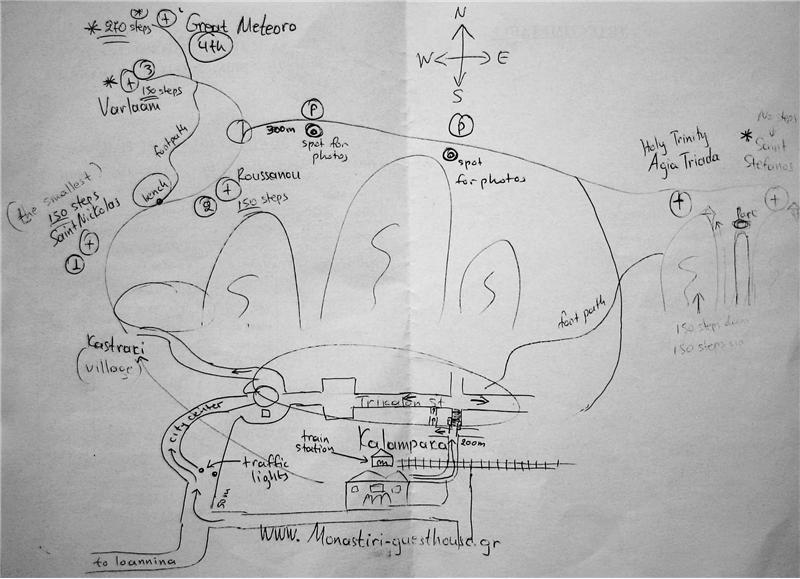 * 270 steps
Great Meteoro
4th
N
W E
S
* 3
150 steps
Varlaam
footpath
300m
P
spot for
photos
P
spot
for photos
Holy Trinity
Agia Triada
No steps
* Saint
Stefanos
(the smallest)
150 steps
Saint Nickolas
1
bench
2
Roussanou
150 steps
150 steps down
foot path
Kastraki
(village)
city center
Trikalon St
Kalampaka
200m
train
station
traffic
lights
www.Monastiri-guesthouse.gr
to Ioannina